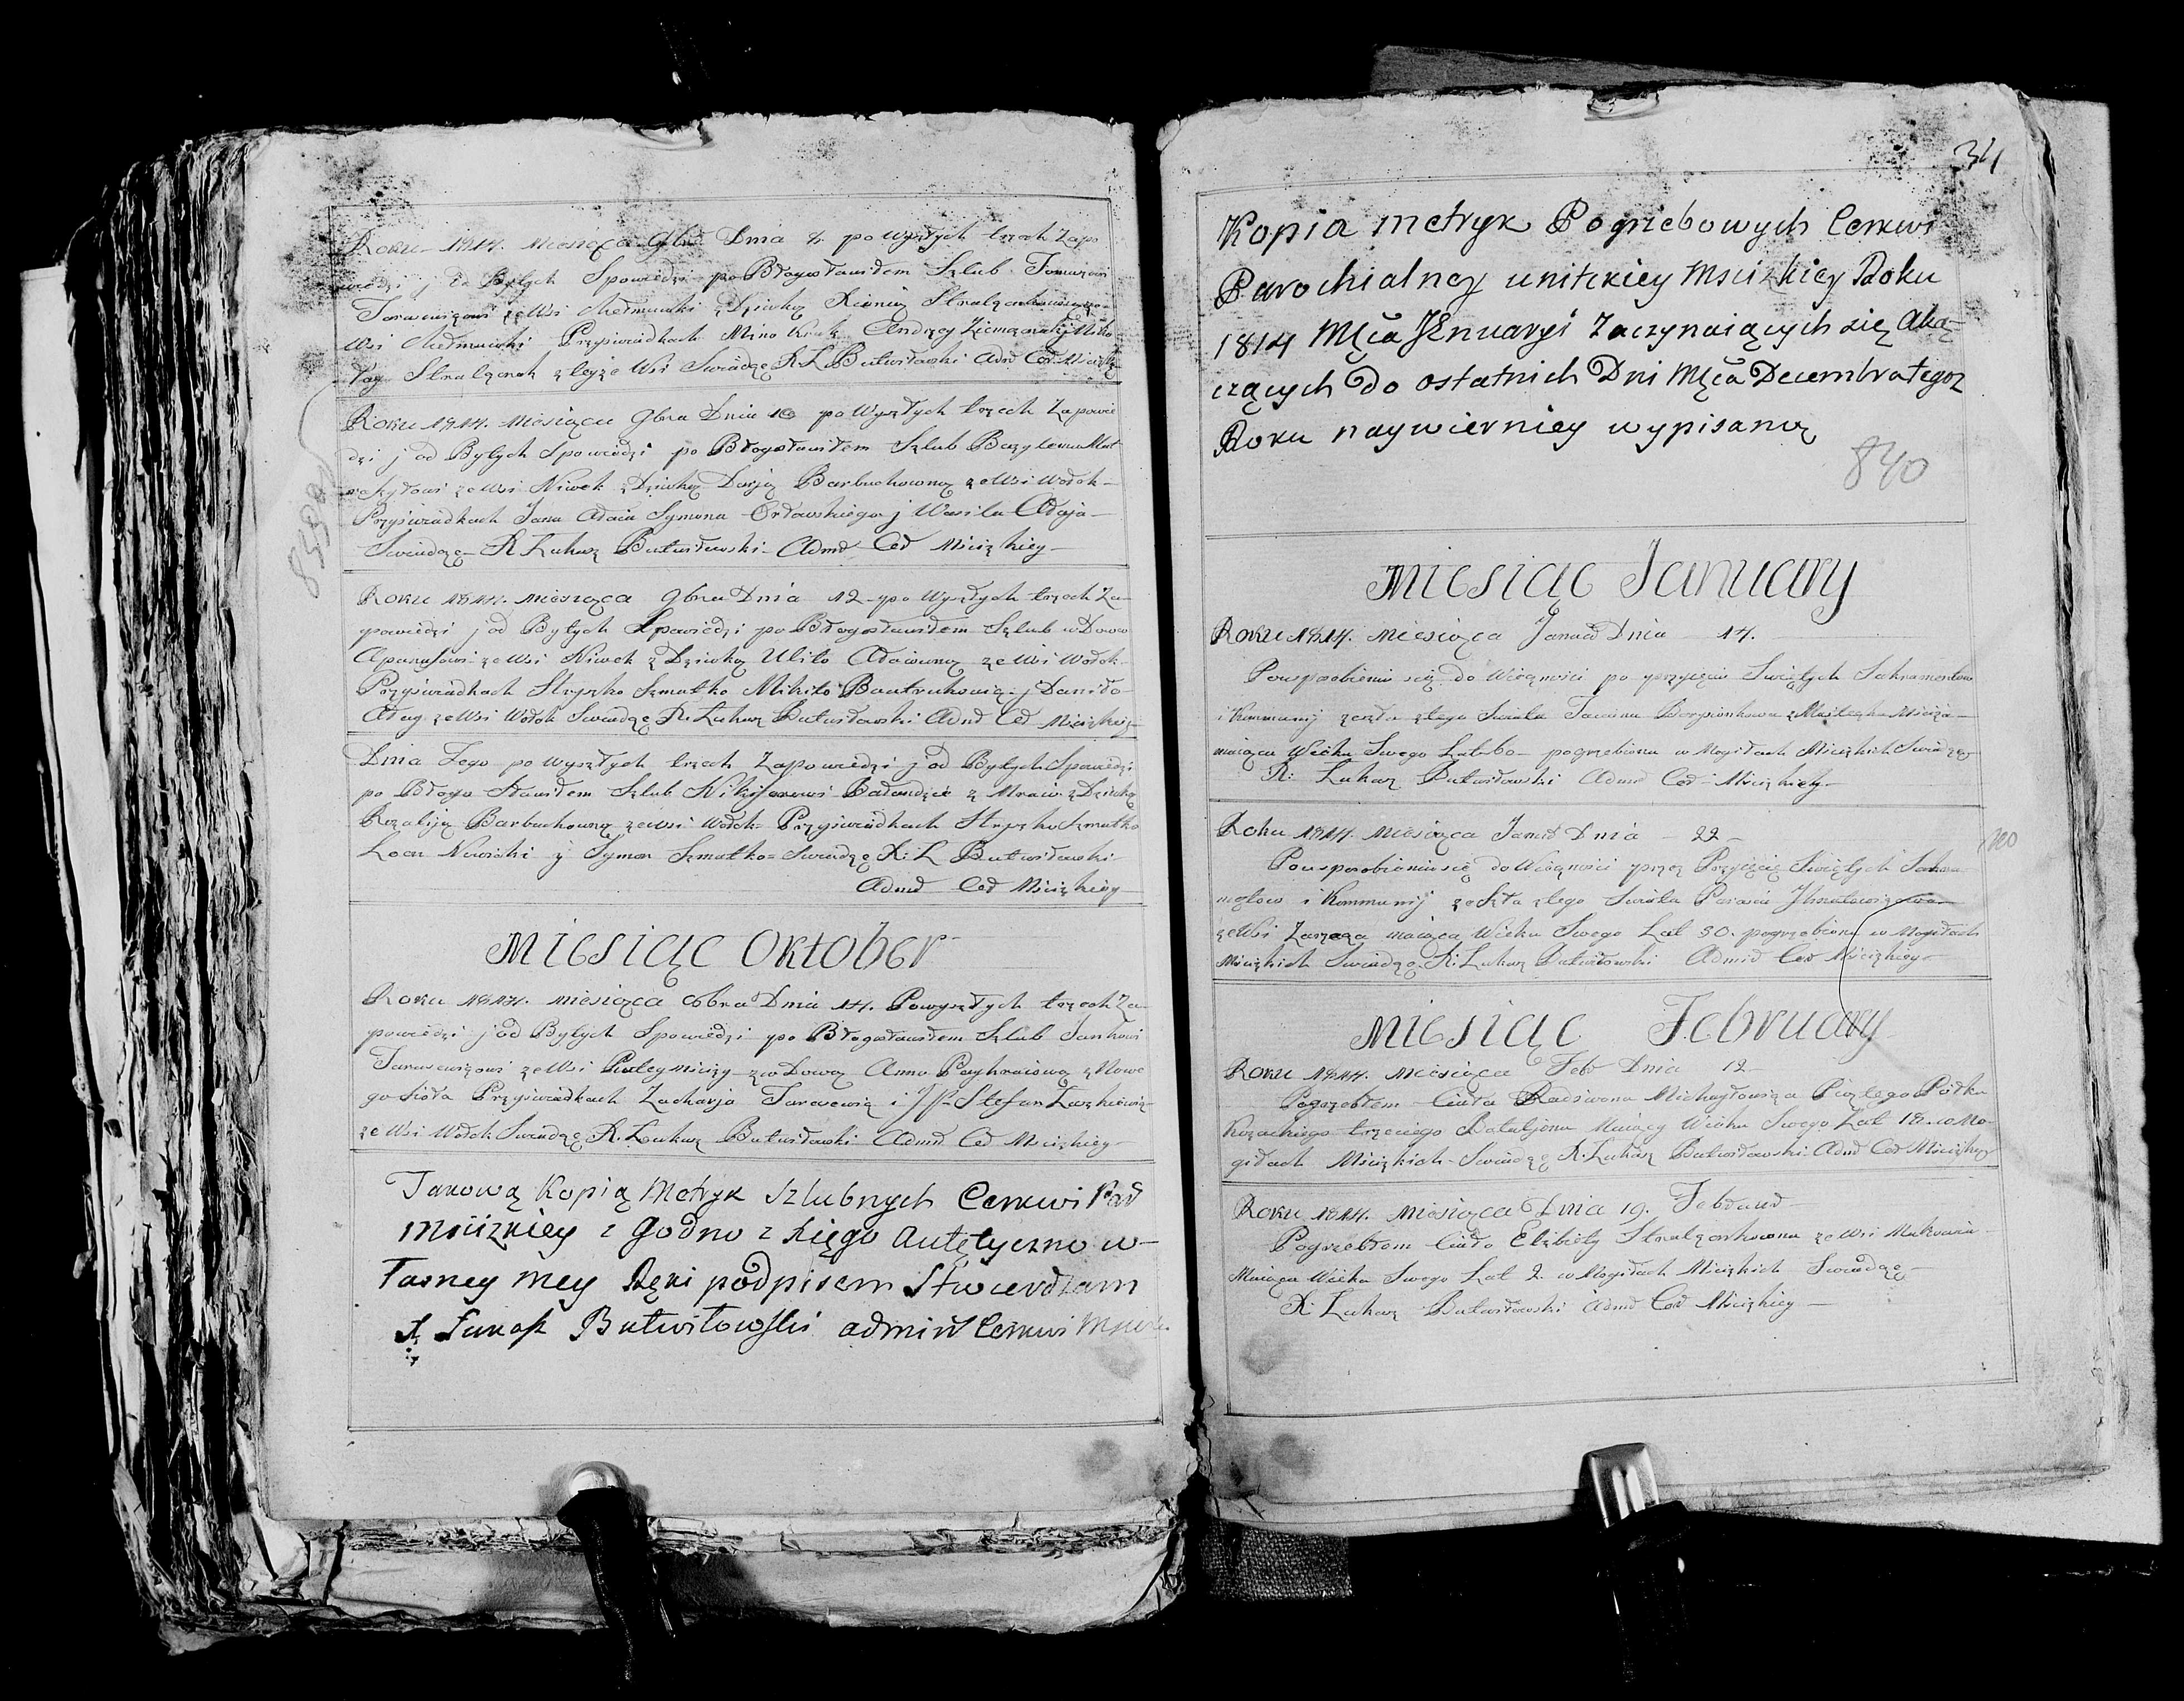 Roku 1814. miesiąca 9bra Dnia 4. po wyszłych trzech Zapo
wiedzi j od Byłych Spowiedzi po Błogosławiłem Szlub Tomaszowi
Tarasewiczowi ze Wsi z Dziewką Xienią
Wsi Przyświadkach Mino Kruk Andrzey
z teyże Wsi Swiadczę R L Butwiłowski Admr Cer Mścizkiey
Roku 1814. Miesiąca 9bra Dnia 10 po Wyszłych trzech Zapowie
dzi j od Byłych Spowiedzi po Błogosławiłem Szlub Bazylemu
ze Wsi Niwek z Dziewką Darją Barbuchowną ze Wsi Wołok
Przyświadkach Jana Adaia Symona Orłowskiego j Wasila Adaja
Swiadczę R Łukasz Butwiłowski Admr Cer Mścizkiey
Roku 1814. miesiąca 9bra Dnia 12 po Wyszłych trzech Za
powiedzi j od Byłych Spowiedzi po Błogosławiłem Szlub wDowu
Apanasowi ze Wsi Niwek z Dziewką Ulito Adaiowną ze Wsi Wołok
Przyświadkach Hryszko Szmatko Mikito j Daniło
Aday ze Wsi Wołok Swiadczę R. Łukasz Butwiłowski Admr Cer Mścizkiey
Dnia Tego po wyszłych trzech Zapowiedzi j od Byłych Spowiedzi
po Błogo Sławiłem Szlub Nikiforowi z z Dziewką
Rozaliją Barbuchowną ze Wsi Wołok Przyświadkach Hryszko Szmatko
Nowicki y Symon Szmatko Swiadczę R: L Butwiłowski
Admr Cer Mścizkiey
Miesiąc Oktober
Roku 1814. miesiąca 8bra Dnia 14. Powyszłych trzech Za
powiedzi j od Byłych Spowiedzi po Błogosławiłem Szlub Jankowi
Tarasewiczowi ze Wsi zwDową Anno z Nowe
go Sioła Przyświadkach Zacharja Tarasewicz i JP Stefan Łaszkiewicz
ze Wsi Wołok Swiadczę R. Łukasz Butwiłowski Admr Cer Mścizkiey
Takową Kopią Metryk Szlubnych Cerkwi Par
Mścizkiey z Godno z Xięgo Autętyczno w
łasney mey Ręki podpisem Stwierdzam
X Łukasz Butwiłowski admin Cerkwi
34
Kopia metryk Pogrzebowych Cerkwi
Parochialney unitckiey Mścizkiey Roku
1814 Męca JEnuaryi Zaczynaiących się Aką
czących Do ostatnich Dni Męca Decembra tegoz
Roku naywierniey wypisaną
840
Miesiąc January
Roku 1814. miesiąca Januar Dnia 14.
Pousposobieniu się do Wieczności po przyjęciu Swiętych Sakramentow
i Kommunij zeszła z tego Swiata z Miasteczka Mściża
maiąca Wieku Swego Lat 60 pogrzebiona w Mogiłach Mścizkich Swiadczę
R: Łukasz Butwiłowski Admr Cer Mścizkiey
Roku 1814. miesiąca Januar Dnia 22
Pousposobieniu się do Wieczności przez Przyięcie Swiętych Sakra
mętow i Kommunij zeszła z tego Swiata
ze Wsi maiąca Wieku Swego Lat 50. pogrzebiona w Mogiłach
Mścizkich Swiadczę R: Łukasz Butwiłowski Admr Cer Mścizkiey
Miesiąc February
Roku 1814. miesiąca Febr Dnia 12
Pogrzebłem Ciała Radiwona Michayłowicza Piątego Półku
Kozackiego trzeciego Bataljonu Maiący Wieku Swego Lat 18 w Mo
giłach Mścizkich Swiadczę R. Łukasz Butwiłowski Admr Cer Mścizkiey
Roku 1814. Miesiąca Dnia 19. Februar
Pogrzebłem Ciało Elżbiety ze Wsi
Maiąca Wieku Swego Lat 2. w Mogiłach Mścizkich Swiadczę
R: Łukasz Butwiłowski Admr Cer Mścizkiey